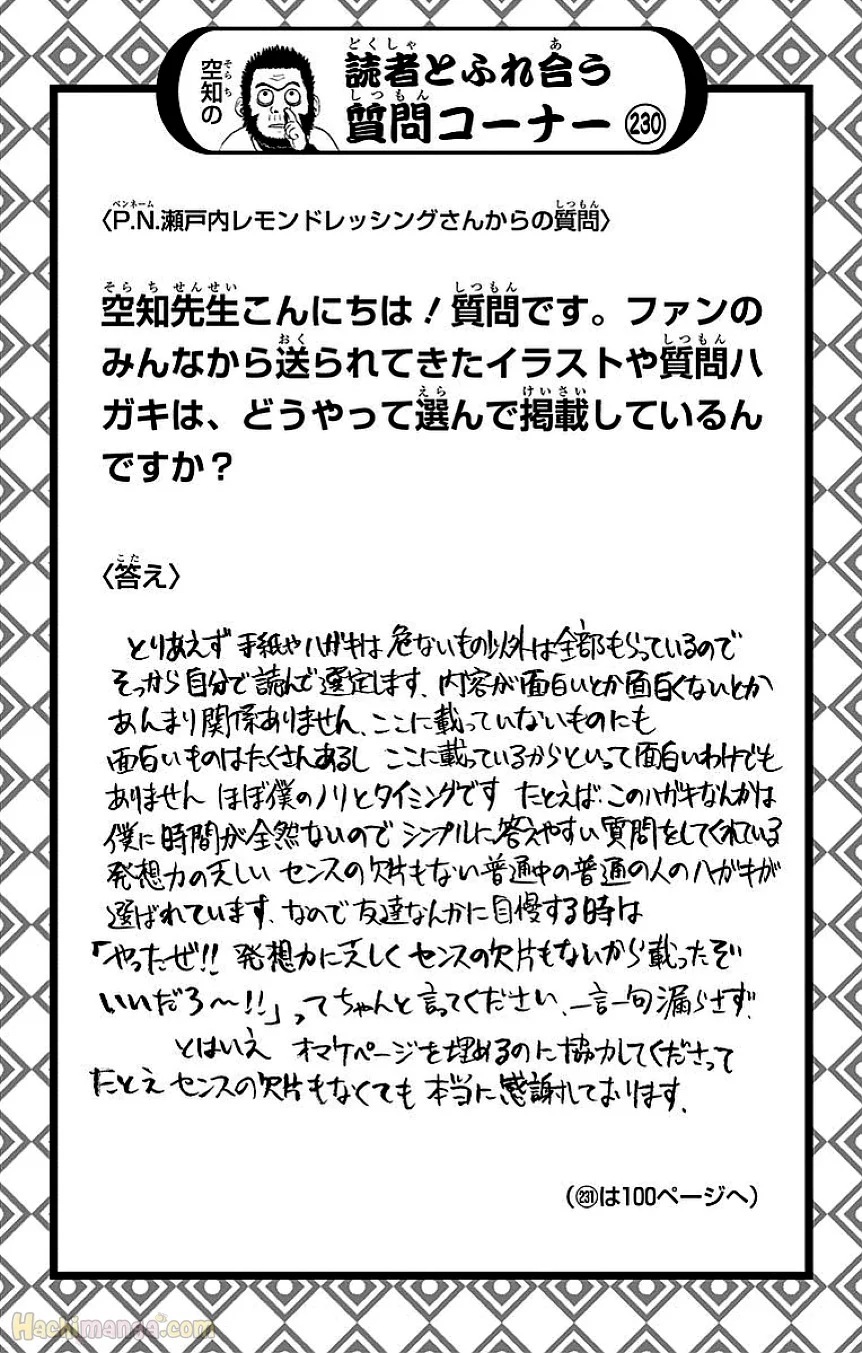 空知の
読者とふれ合う
質問コーナー 230
〈P.N.瀬戸内レモンドレッシングさんからの質問〉
空知先生こんにちは！質問です。ファンの
みんなから送られてきたイラストや質問ハ
ガキは、どうやって選んで掲載しているん
ですか？
〈答え〉
とりあえず手紙やハガキは危ないもの以外は全部もらっているので
そっから自分で読んで選定します、内容が面白いとか面白くないとか
あんまり関係ありません、ここに載っていないものにも
面白いものはたくさんあるし ここに載っているからといって面白いわけでも
ありません ほぼ僕のノリとタイミングです たとえば、このハガキなんかは
僕に時間が全然ないので シンプルに答えやすい質問をしてくれている
発想力の乏しい センスの欠片もない普通中の普通の人のハガキが
選ばれています、なので友達なんかに自慢する時は
「やったぜ!! 発想力に乏しく センスの欠片もないから載ったぞ
いいだろ〜!!」ってちゃんと言ってください、一言一句漏らさず、
とはいえ オマケページを埋めるのに協力してくださって
たとえセンスの欠片もなくても 本当に感謝しております、
（231は100ページへ）
Hachimanga.com